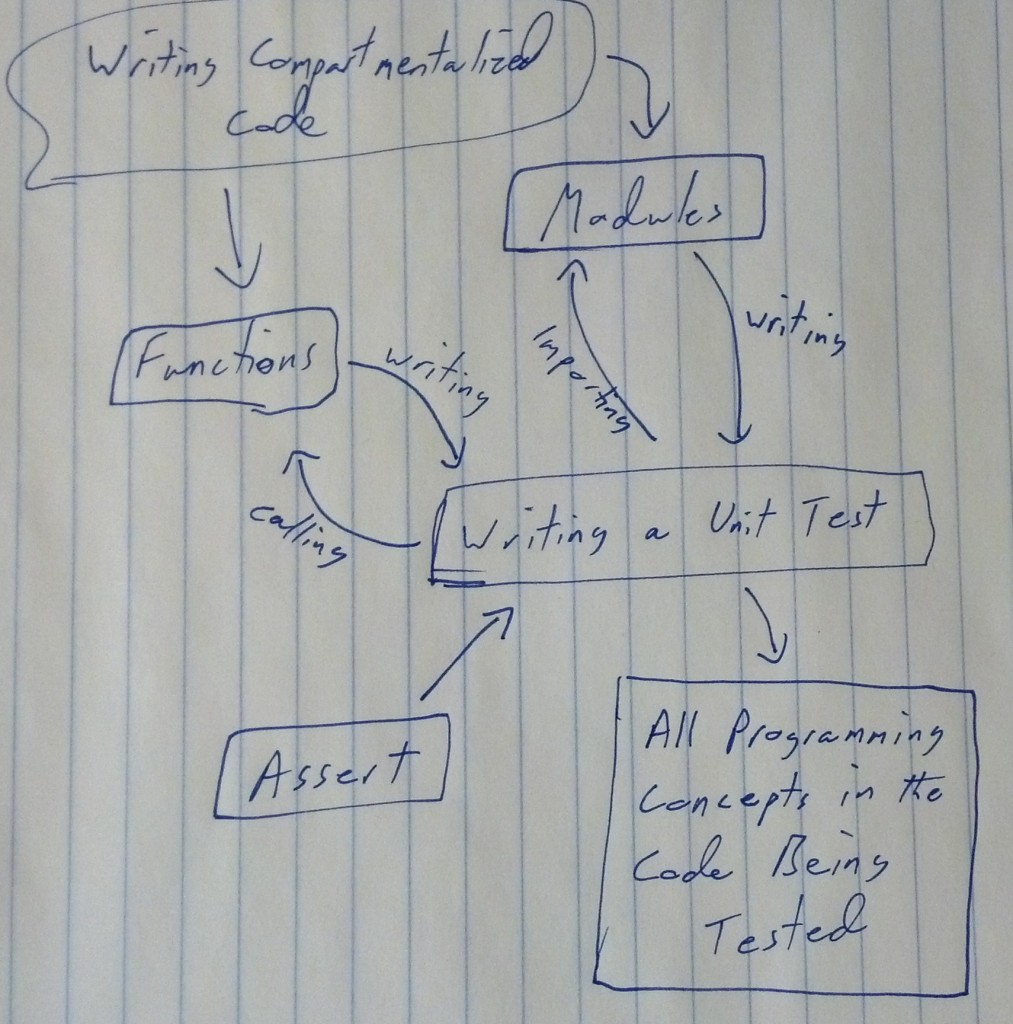 Writing Compartmentalized
Code
Modules
Functions
writing
writing
Importing
calling
Writing a Unit Test
Assert
All Programming
Concepts in the
Code Being
Tested